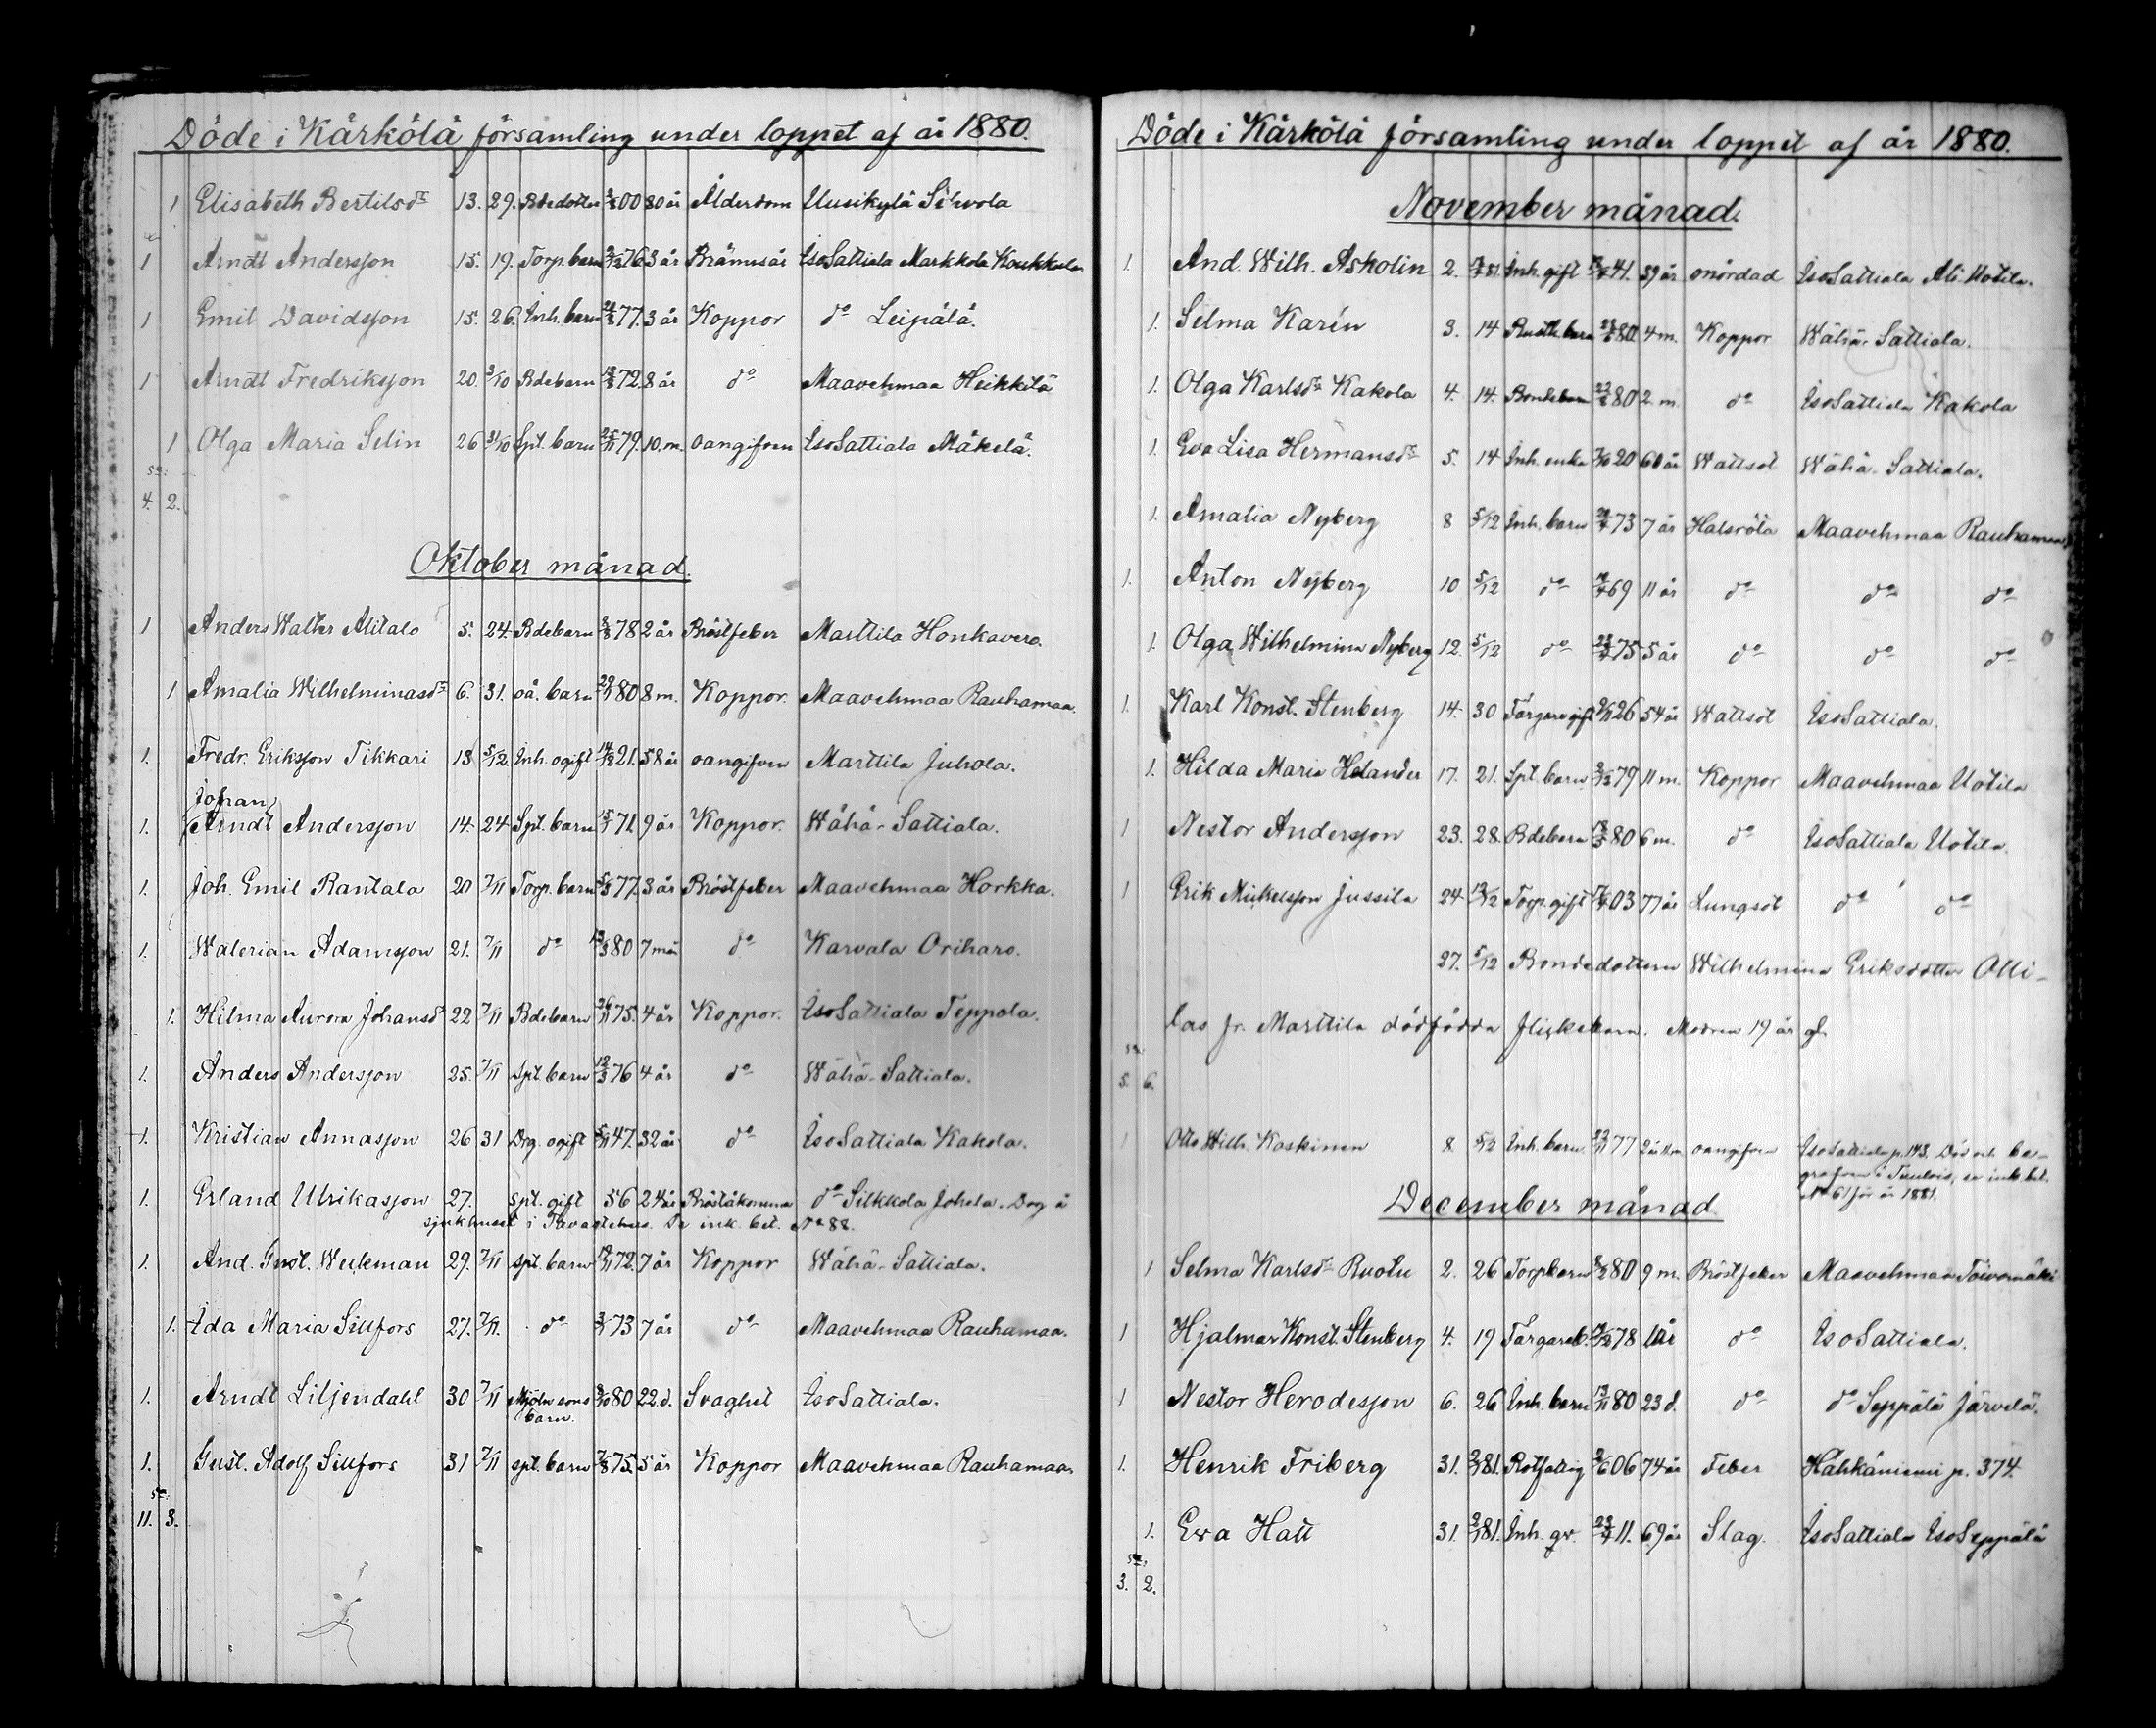 Döde i Kärkölä församling under loppet af år 1880.
1 Elisabeth Bertilsdr 13. 29. Bdedotter 00 80 år Ålderdom Uusikylä Sihvola
1 Arndt Andersson 15. 19. Torp. barn 76 3 år Brännsår IsoSattiala Markkola Koukkula
1 Emil Davidsson 15. 26. Inh. barn 77. 3 år Koppor do Leipälä.
1 Arndt Fredriksson 20. 3/10 Bdebarn 72. 8 år do Maavehmaa Heikkilä
1 Olga Maria Selin 26 31/10 Spt. barn 25/11 79. 10. m. oangifven IsoSattiala Mäkelä.
sa:
4. 2.
Oktober månad.
1 Anders Walter Alitalo 5. 24. Bdebarn 78 2 år Bröstfeber Marttila Honkavero.
1 Amalia Wilhelminasdr 6. 31. oä. barn 29/1 80 8 m. Koppor. Maavehmaa Rauhamaa.
1. Fredr. Eriksson Tikkari 13 5/12. Inh. ogift 14/12 21. 58 år oangifven Marttila Juhola.
Johan
1. Arndt Andersson 14. 24 Spt. barn 71 9 år Koppor. Wähä-Sattiala.
1. Joh. Emil Rantala 20 7/11 Torp. barn 77. 3 år Bröstfeber Maavehmaa Horkka.
1. Walerian Adamsson 21. 7/11 do 80 7 mån do Karvala Oriharo.
1. Hilma Aurora Johansdr 22 7/11 Bdebarn 26/11 75. 4 år Koppor. IsoSattiala Teppola.
1. Anders Andersson 25. 7/11 Spt. barn 76 4 år do Wähä-Sattiala.
1. Kristian Annasson 26 31 Drg. ogift 47. 32 år do IsoSattiala Kakola.
1. Erland Ulrikasson 27. spt. gift 56 24 år Bröståkomma do Silkkola Johola. Dog å
sjukhuset i Tavastehus. Se ink. bet. No 88.
1. And. Gust. Weckman 29. 7/11 spt. barn 72. 7 år Koppor Wähä-Sattiala.
1. Ida Maria Sillfors 27. 7/11. do 73 7 år do Maavehmaa Rauhamaa.
1. Arndt Liljendahl 30 7/11 Mjöln. sons 80 22 d. Svaghet IsoSattiala.
barn.
1. Gust. Adolf Sillfors 31 7/11 spt. barn 75. 5 år Koppor Maavehmaa Rauhamaa
sa:
11. 3.
Döde i Kärkölä församling under loppet af år 1880.
November månad.
1. And. Wilh. Askolin 2. 81. Inh. gift 41. 39 år mördad IsoSattiala Ali Uotila.
1. Selma Karin 3. 14 barn 80. 4 m. Koppor Wähä-Sattiala.
1. Olga Karlsdr Kakola 4. 14. Bondebarn 80 2 m. do IsoSattiala Kakola
1. Eva Lisa Hermansdr 5. 14 Inh. enka 20 60 år Wattsot Wähä-Sattiala.
1. Amalia Nyberg 8 5/12 Inh. barn 73 7 år Halsröta Maavehmaa Rauhamaa
1. Anton Nyberg 10 5/12 do 69 11 år do do do
1. Olga Wilhelmina Nyberg 12. 5/12 do 75 5 år do do do
1. Karl Konst. Stenberg 14. 30 Färgare gift 26 54 år Wattsot IsoSattiala.
1. Hilda Maria Helander 17. 21. Spt. barn 79 11 m. Koppor Maavehmaa Uotila
1 Nestor Andersson 23. 28. Bdebarn 80 6 m. do IsoSattiala Uotila
1 Erik Mickelsson Jussila 24 12/12 Torp. gift 03 77 år Lungsot do do
27. 5/12 Bondedottern Wilhelmina Eriksdotter Olli-
las fr. Marttila dödfödda flickebarn. Modren 19 år gl.
sa:
5. 6.
1 Otto Wilh. Koskinen 8. 5/12 Inh. barn. 77 2 år 11 m oangifven IsoSattiala p. 143. Död och be-
grafven i Tuulois, se ink. bet.
No 61 för år 1881.
December månad
1 Selma Karlsdr Ruotu 2. 26 Torpbarn 80 9 m. Bröstfeber Maavehmaa Toivomäki
1 Hjalmar Konst. Stenberg 4. 19 Färgareb. 78 år do IsoSattiala.
1 Nestor Herodesson 6. 26 Inh. barn 13/11 80 23 d. do do Seppälä Järvelä.
1. Henrik Friberg 31. 81. Rotfattig 06 74 år Feber Hähkäniemi p. 374.
1. Eva Hatt 31. 81. Inh. gv. 11. 69 år Slag. IsoSattiala IsoSeppälä
sa:
3. 2.